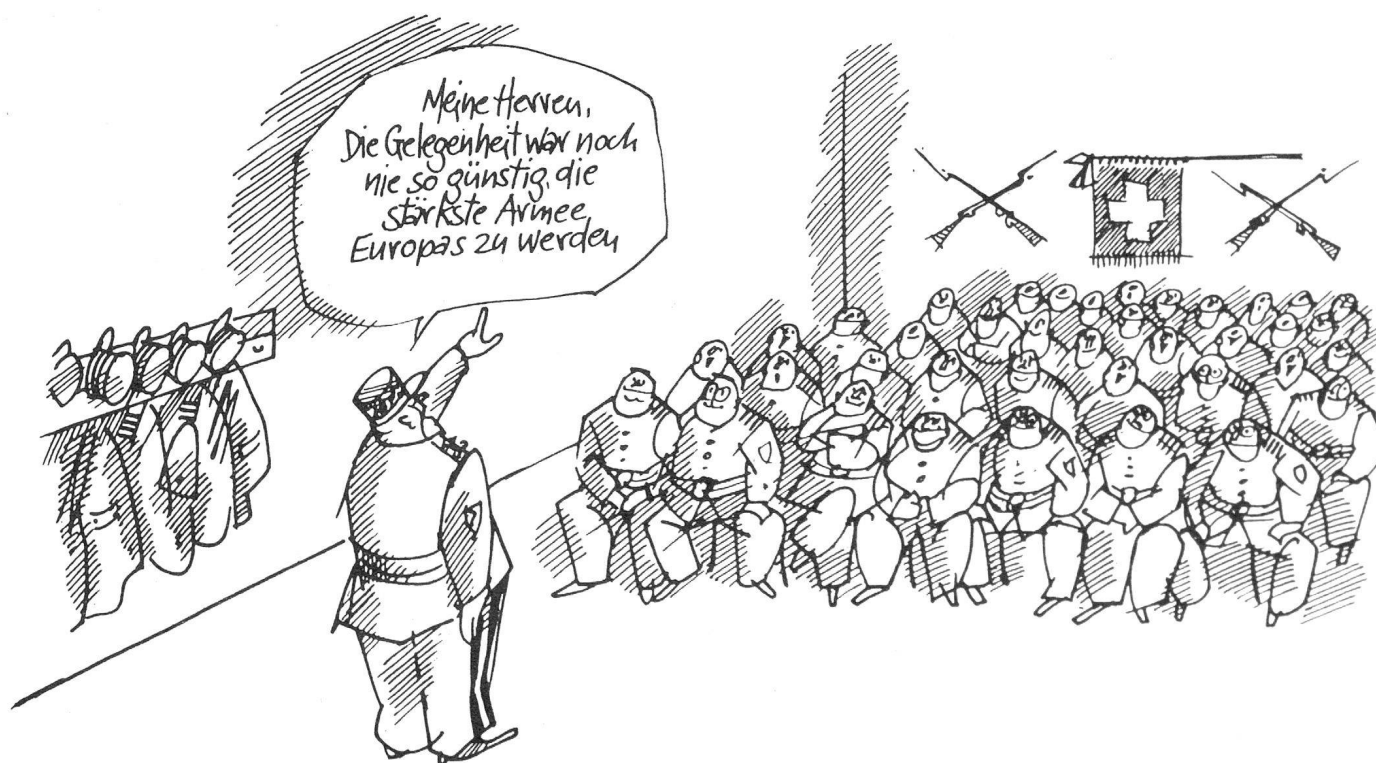 Meine Herren,
Die Gelegenheit war noch
nie so günstig, die
stärkste Armee
Europas zu werden